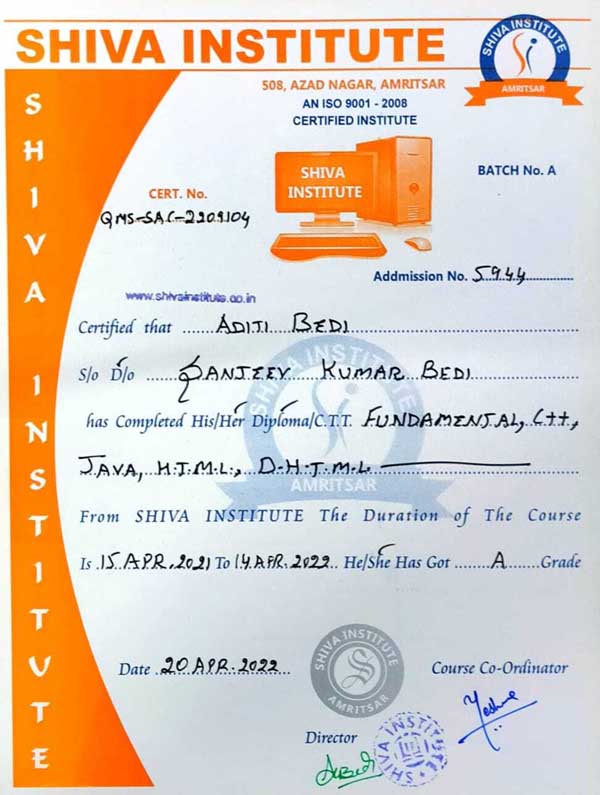 SHIVA INSTITUTE
SHIVA INSTITUTE
AMRITSAR
508, AZAD NAGAR, AMRITSAR
AN ISO 9001 - 2008
CERTIFIED INSTITUTE
SHIVA INSTITUTE
SHIVA
INSTITUTE
BATCH No. A
CERT. No.
QMS-SAC-2209104
Addmission No. 5944
www.shivainstitute.co.in
Certified that ADITI BEDI
S/o D/o SANJEEV KUMAR BEDI
has Completed His/Her Diploma/C.T.T. FUNDAMENTAL, C++,
JAVA, H.T.M.L., D-H-T.M.L
SHIVA INSTITUTE
AMRITSAR
From SHIVA INSTITUTE The Duration of The Course
Is 15 APR. 2021 To 14 APR. 2022 He/She Has Got A Grade
SHIVA INSTITUTE
AMRITSAR
Date 20 APR. 2022
Course Co-Ordinator
Director
SHIVA INSTITUTE